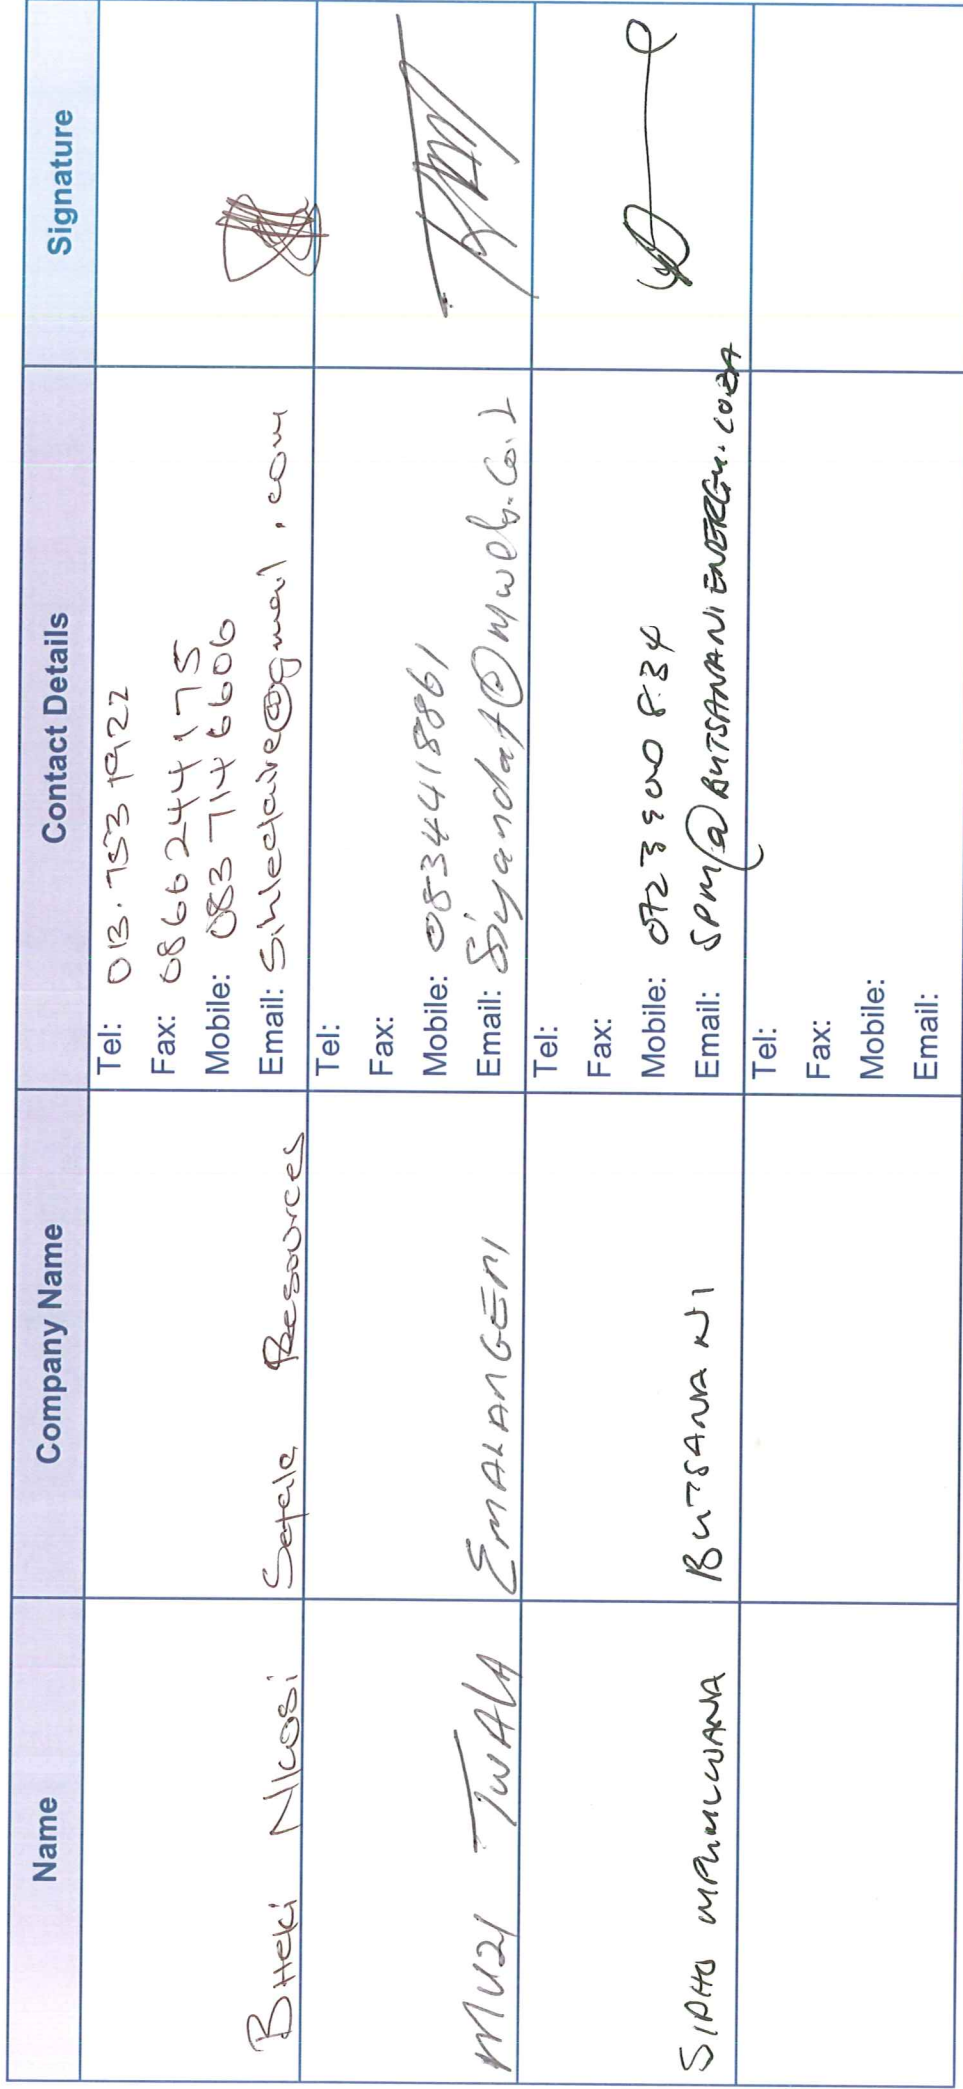 Name Company Name Contact Details Signature
Bheki Nkosi Resources
Tel:
Fax: 0866244175
Mobile: 083 714 6606
Email: @gmail.com
MUZI TWALA EMALANGENI
Tel:
Fax:
Mobile: 0834418861
Email:
SIPHO MPUMLWANA BUTSANANI
Tel:
Fax:
Mobile:
Email: SPM@BUTSANANIENERGY.CO.ZA
Tel:
Fax:
Mobile:
Email: